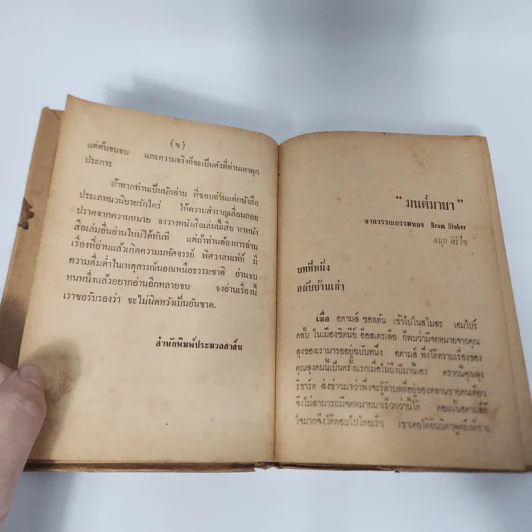 (ข)
แต่ต้นจนจบ และความจริงก็จะเป็นดังที่ท่านเดาทุก
ประการ
ถ้าหากท่านเป็นนักอ่าน ที่ชอบอ่านแต่หนังสือ
ประเภทนวนิยายรักใคร่ ให้ความสำราญเลื่อนลอย
ปราศจากความหมาย จงวางหนังสือเล่มนี้เสีย หาหนัง
สือเล่มอื่นอ่านใหม่ได้ทันที แต่ถ้าท่านต้องการอ่าน
เรื่องที่อ่านแล้วเกิดความมหัศจรรย์ พิศวงสนเท่ห์ มี
ความตื่นต่ำในเหตุการณ์นอกเหนือธรรมชาติ อ่านจบ
หนหนึ่งแล้วอยากอ่านอีกหลายจบ จงอ่านเรื่องนี้
เราขอรับรองว่า จะไม่ผิดหวังเป็นอันขาด.
สำนักพิมพ์ประมวลสาส์น
“ มนต์มายา ”
จากวรรณกรรมของ Bram Stoker
สมุก ศิริไข
บทที่หนึ่ง
กลับบ้านเก่า
เมื่อ อดามส์ ซอลตัน เข้าไปในสโมสร เอมไปร์
คลับ ในเมืองซิดนีย์ ออสเตรเลีย ก็พบว่ามีจดหมายจากคุณ
ลุงของเรามารออยู่ฉบับหนึ่ง อดามส์ พึ่งได้ทราบเรื่องของ
คุณลุงคนนี้เป็นครั้งแรกเมื่อไม่ถึงปีมานี้เอง คราวนั้นคุณลุง
ริชาร์ด ส่งข่าวมาว่าพึ่งจะรู้ตำบลที่อยู่ของหลานชายคนเดียว
จึงไม่สามารถมีจดหมายมาเร็วกว่านี้ได้